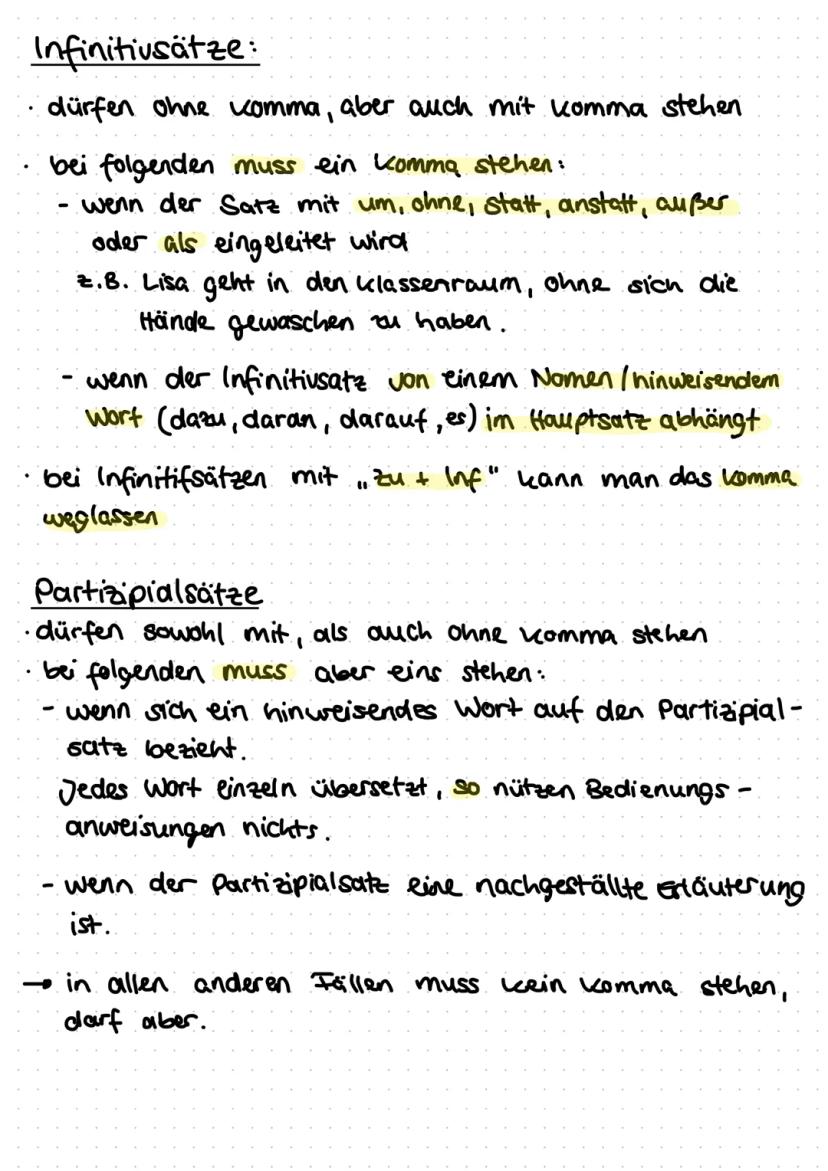 Infinitivsätze:
· dürfen ohne Komma, aber auch mit Komma stehen
· bei folgenden muss ein Komma stehen:
- wenn der Satz mit um, ohne, statt, anstatt, außer
oder als eingeleitet wird
z.B. Lisa geht in den Klassenraum, ohne sich die
Hände gewaschen zu haben.
- wenn der Infinitivsatz von einem Nomen/hinweisendem
Wort (dazu, daran, darauf, es) im Hauptsatz abhängt
· bei Infinitifsätzen mit „zu + Inf" kann man das Komma
weglassen
Partizipialsätze
· dürfen sowohl mit, als auch ohne Komma stehen
· bei folgenden muss aber eins stehen:
- wenn sich ein hinweisendes Wort auf den Partizipial-
satz bezieht.
Jedes Wort einzeln übersetzt, so nützen Bedienungs-
anweisungen nichts.
- wenn der Partizipialsatz eine nachgeställte Erläuterung
ist.
→ in allen anderen Fällen muss kein Komma stehen,
darf aber.